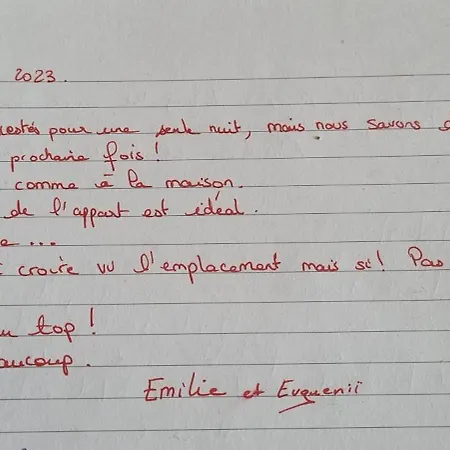 2023.
restés pour une seule nuit, mais nous savons
prochaine fois !
comme à la maison.
de l'appart est idéal.
...
croire vu l'emplacement mais si! Pas
top !
Emilie et Evguenii